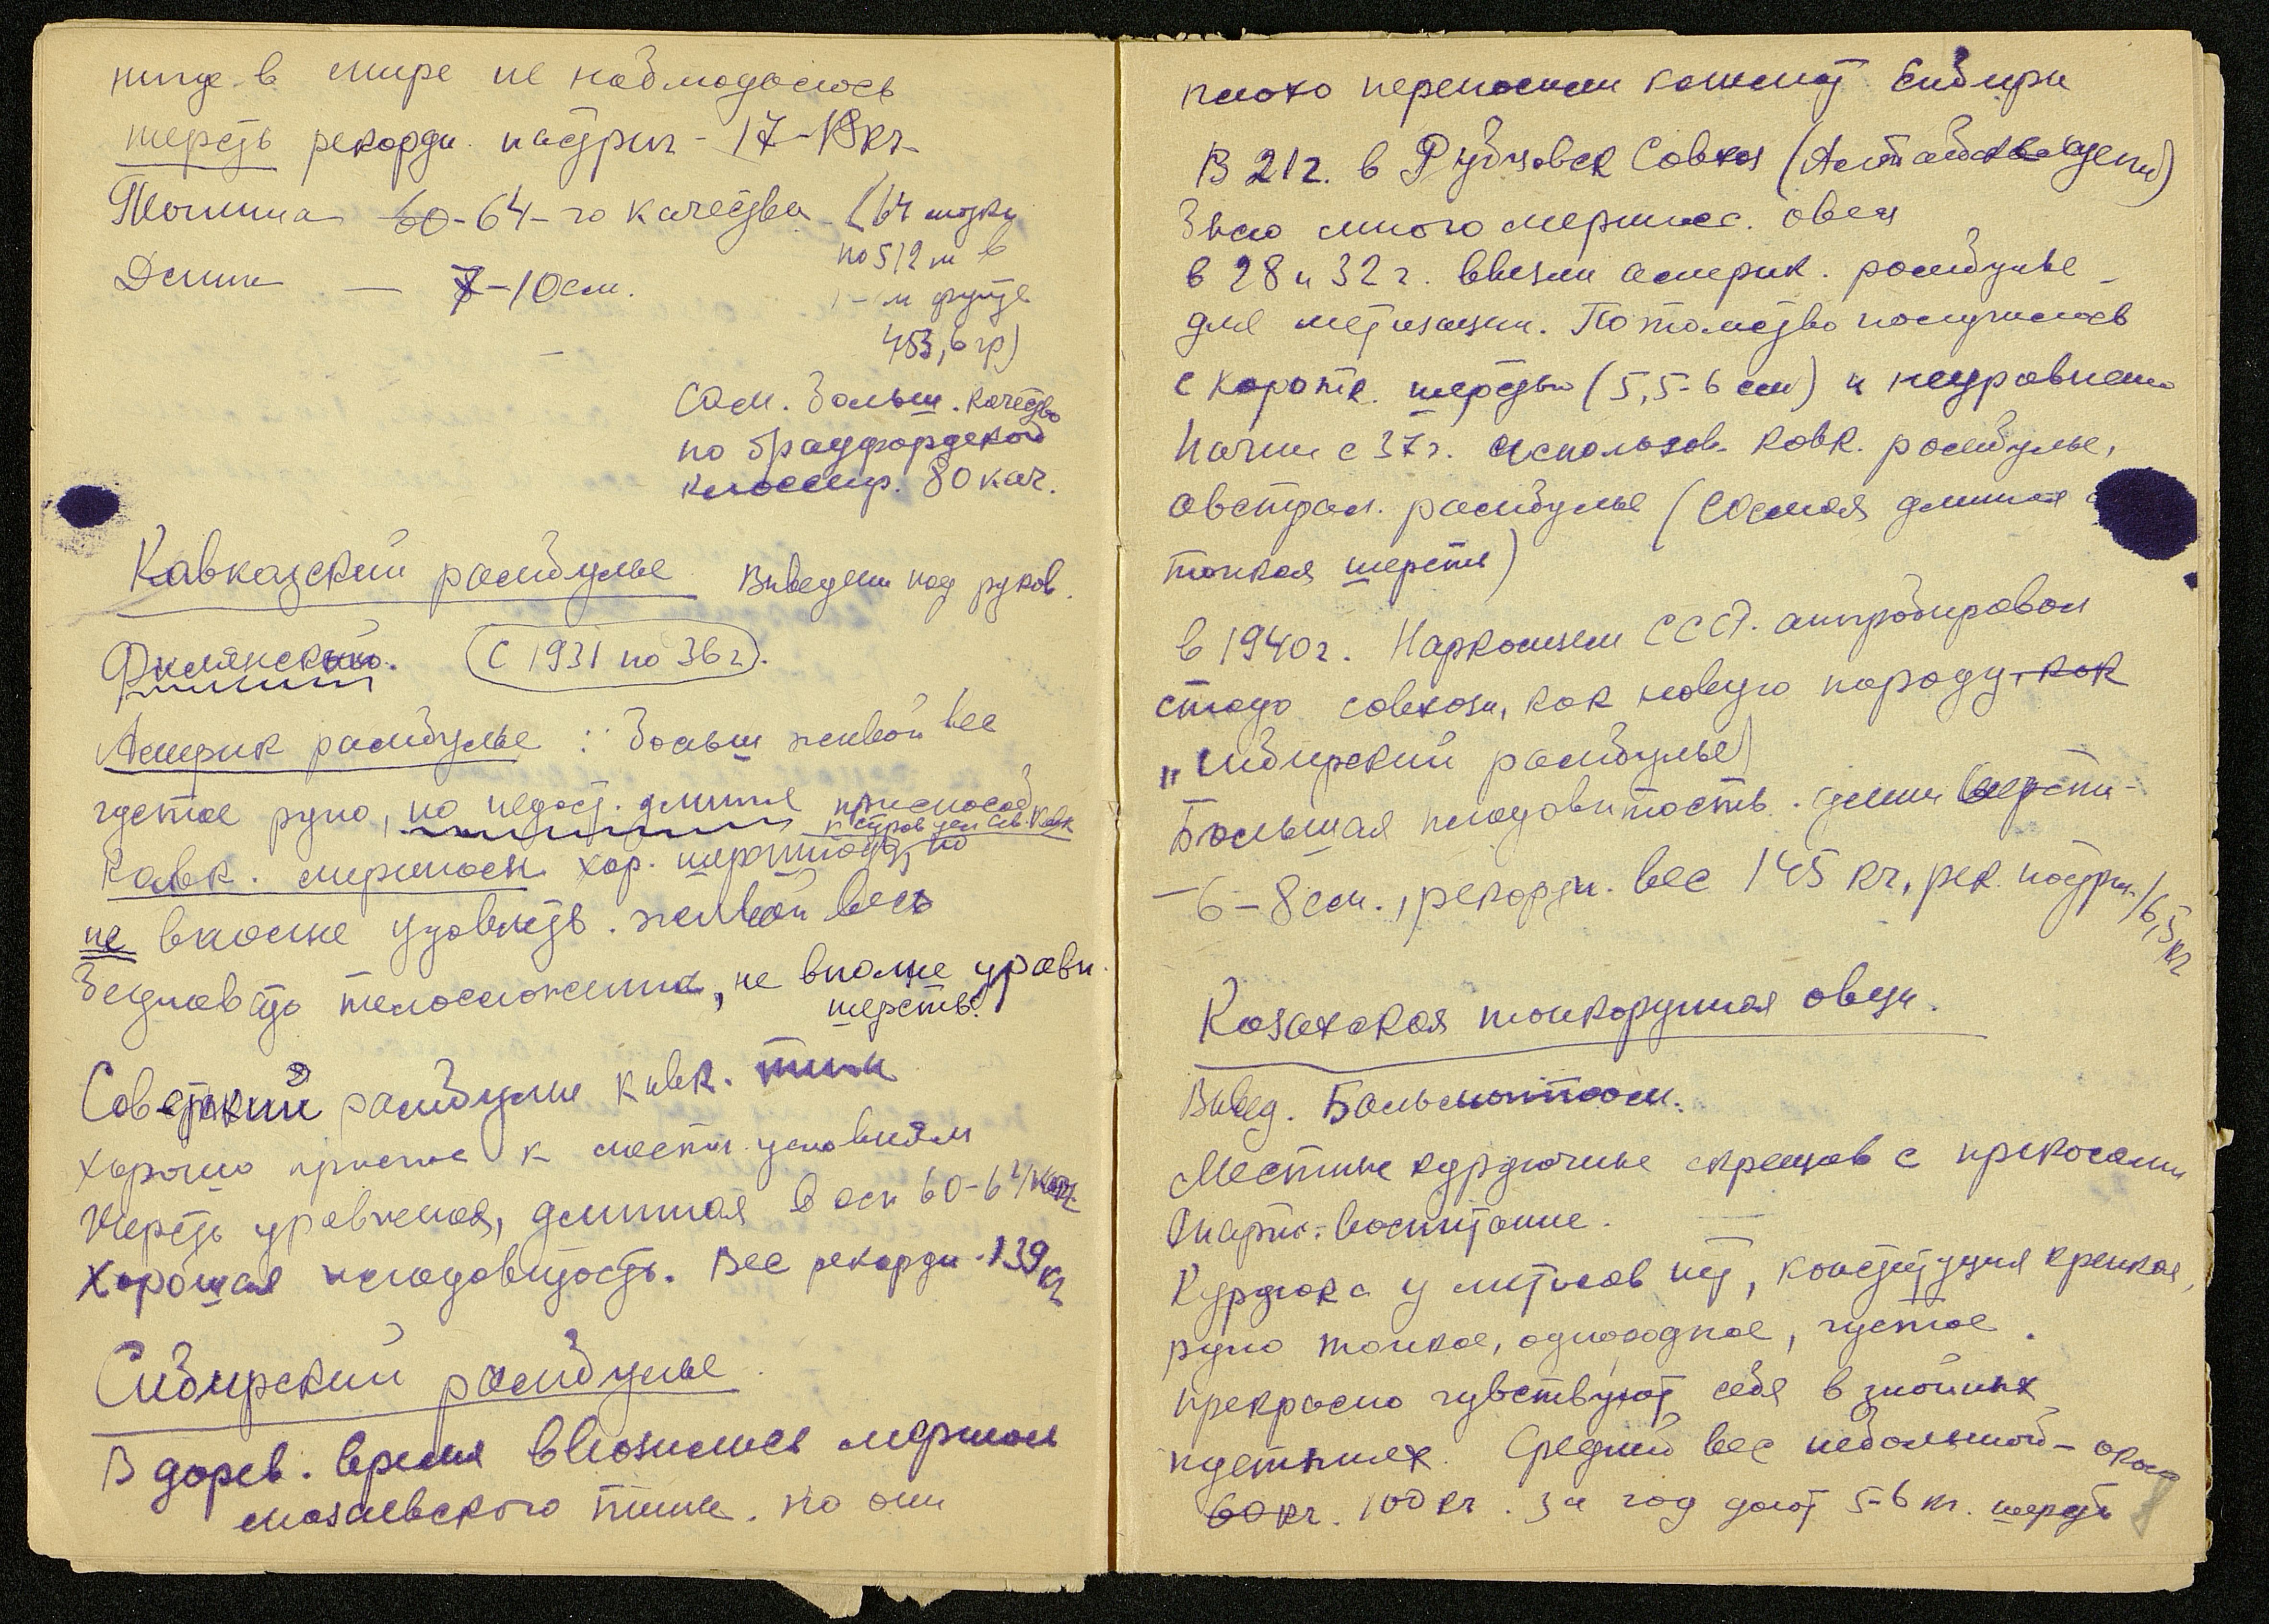 нигде в мире не наблюдалось
шерсть рекордн. настриг - 17-18 кг
Тонина 60-64-го качества (64 мотка
по 512 м в
1-м фунте
453,6 гр)
Длина — 7-10 см.
Сам. больш. качество
по брадфордской
классиф. 80 кач.
Кавказский рамбулье Выведен под руков.
Филянского. (С 1931 по 36 г.)
Америк рамбулье : больш живой вес
густое руно, но недост. длинное приспособ
к суров усл Сев. Кавк
Кавк. мериносы хор. шерстность, но
не вполне удовлетв. живой весь
бедноват телосложение, не вполне уравн.
шерсть.
Советский рамбулье кавк. типа
хорошо приспос к местн. условиям
Шерсть уравненая, длинная в осн 60-64 кач.
Хорошая плодовитость. Вес рекордн. 139 кг
Сибирский рамбулье.
В дорев. время ввозились мериносы
мазаевского типа. но они
плохо переносили климат Сибири
В 21 г. в Рубцовск Совхоз (Алтайск
было много меринос. овец
в 28 и 32 г. ввезли америк. рамбулье -
для метизации. Потомство получилось
с коротк. шерстью (5,5-6 см) и неуравнено
Начин с 37 г. использов. кавк. рамбулье,
австрал. рамбулье (самая длинная
тонкая шерсть)
в 1940 г. Наркомзем СССР. аппробировал
стадо совхоза, как новую породу, как
„сибирский рамбулье"
Большая плодовитость. длина шерсти -
- 6-8 см., рекордн. вес 145 кг, рек. настриг. 16,5 кг
Казахская тонкорунная овца.
Вывед. Бальмонтом.
Местные курдючные скрещив с прекосами
Спарт. воспитание.
Курдюка у метисов нет, конституция крепкая,
руно тонкое, однородное, густое.
прекрасно чувствуют себя в знойных
пустынях. Средний вес небольшой - около
60 кг. 100 кг. За год дают 5-6 кг. шерсть